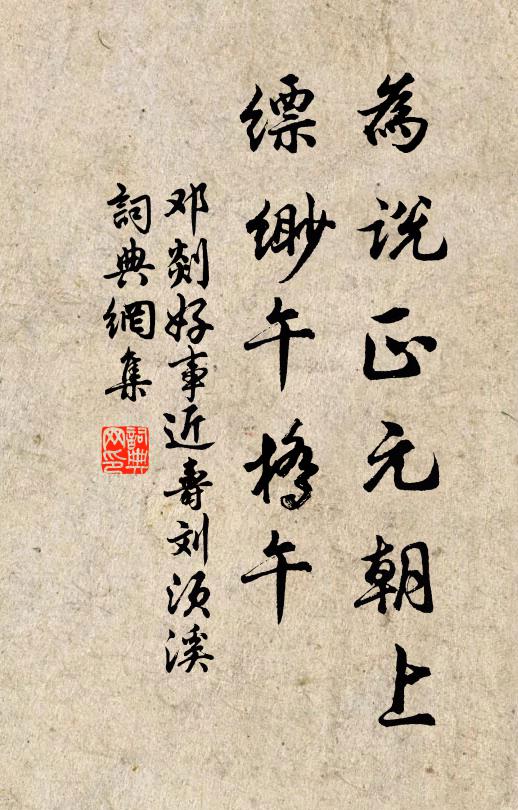 為説正元朝上
縹緲午橋午
邓剡好事近寿刘须溪
詞典網集
詞典网印